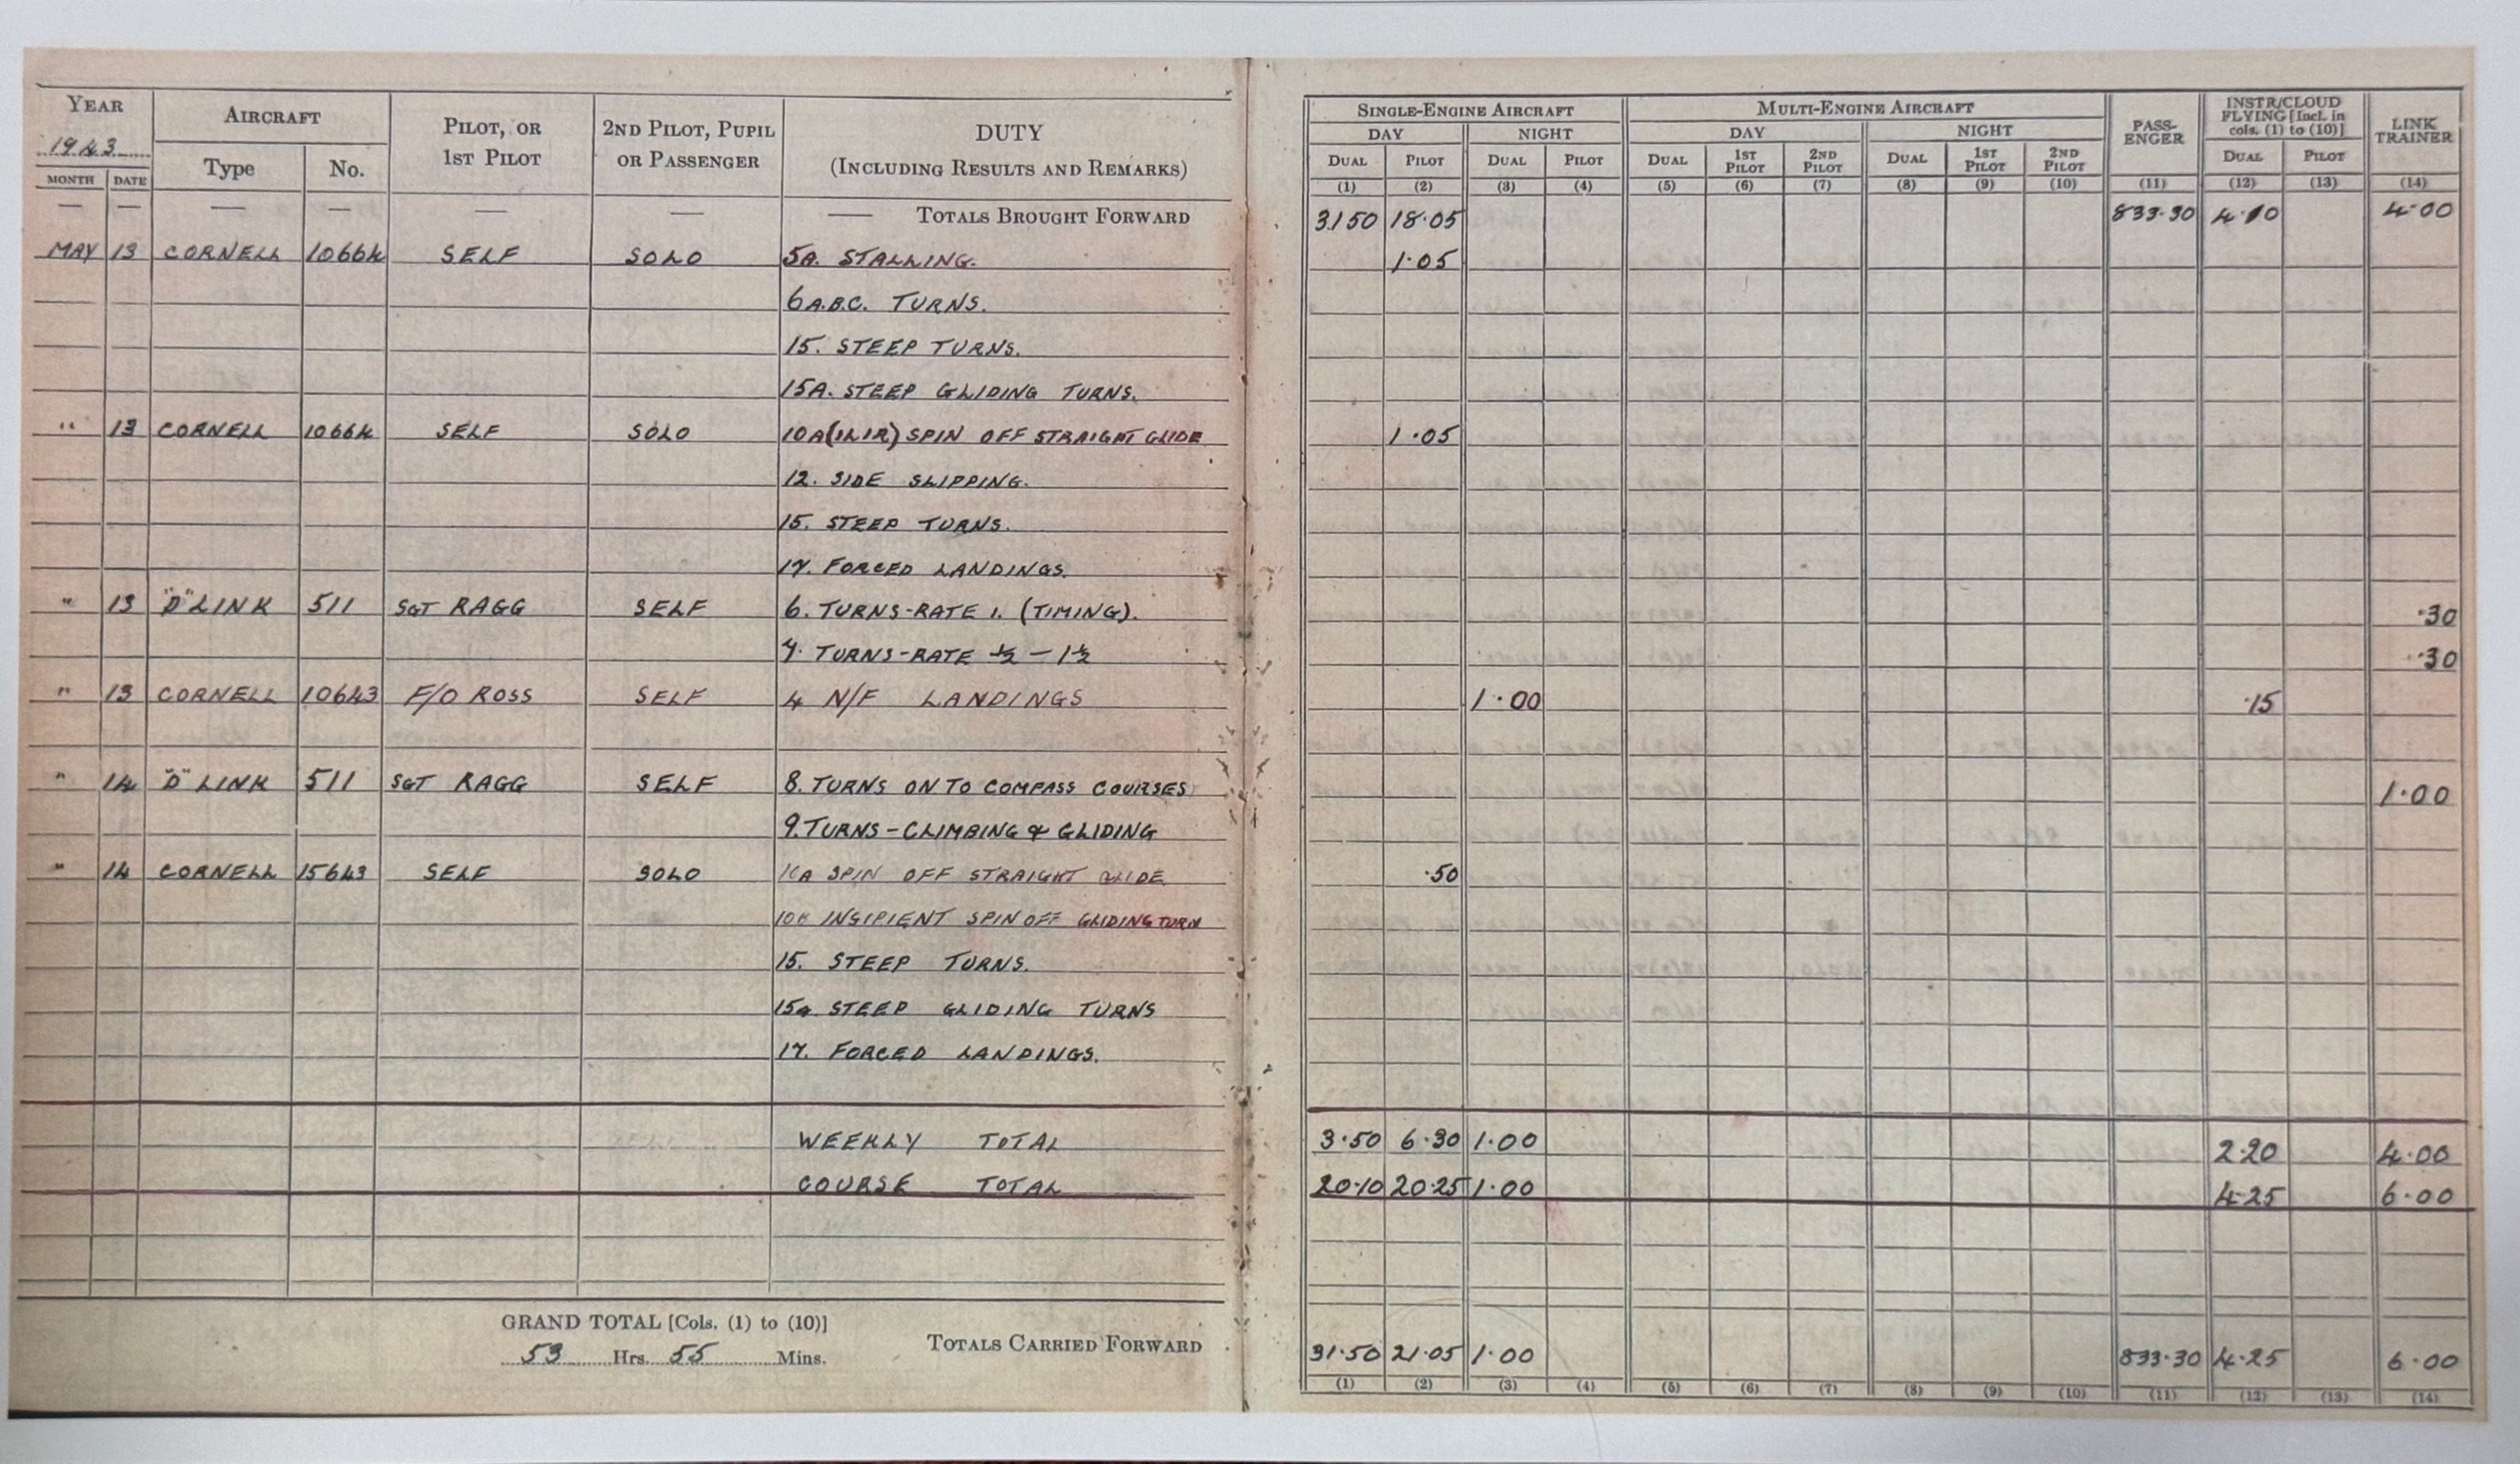 YEAR AIRCRAFT PILOT, OR 1ST PILOT 2ND PILOT, PUPIL OR PASSENGER DUTY (INCLUDING RESULTS AND REMARKS) SINGLE-ENGINE AIRCRAFT MULTI-ENGINE AIRCRAFT PASS-ENGER INSTR/CLOUD FLYING [Incl. in cols. (1) to (10)] LINK TRAINER
1943 Type No. DAY NIGHT DAY NIGHT
MONTH DATE DUAL PILOT DUAL PILOT DUAL 1ST PILOT 2ND PILOT DUAL 1ST PILOT 2ND PILOT DUAL PILOT
(1) (2) (3) (4) (5) (6) (7) (8) (9) (10) (11) (12) (13) (14)
— — — — — — — TOTALS BROUGHT FORWARD 3150 18·05 833·30 4·10 4·00
MAY 13 CORNELL 10664 SELF SOLO 5A. STALLING. 1·05
6A.B.C. TURNS.
15. STEEP TURNS.
15A. STEEP GLIDING TURNS.
" 13 CORNELL 10664 SELF SOLO 10A(1L1R) SPIN OFF STRAIGHT GLIDE 1·05
12. SIDE SLIPPING.
15. STEEP TURNS.
17. FORCED LANDINGS.
" 13 "D" LINK 511 SGT RAGG SELF 6. TURNS-RATE 1. (TIMING). ·30
7. TURNS-RATE ½ – 1½ ·30
" 13 CORNELL 10643 F/O ROSS SELF 4 N/F LANDINGS 1·00 ·15
" 14 "D" LINK 511 SGT RAGG SELF 8. TURNS ON TO COMPASS COURSES 1·00
9. TURNS – CLIMBING & GLIDING
" 14 CORNELL 15643 SELF SOLO 10A SPIN OFF STRAIGHT GLIDE ·50
INSIPIENT SPIN OFF GLIDING TURN
15. STEEP TURNS.
15a STEEP GLIDING TURNS
17. FORCED LANDINGS.
WEEKLY TOTAL 3·50 6·30 1·00 2·20 4·00
COURSE TOTAL 20·10 20·25 1·00 4·25 6·00
GRAND TOTAL [Cols. (1) to (10)]
53 Hrs. 55 Mins. TOTALS CARRIED FORWARD 31·50 21·05 1·00 833·30 4·25 6·00
(1) (2) (3) (4) (5) (6) (7) (8) (9) (10) (11) (12) (13) (14)